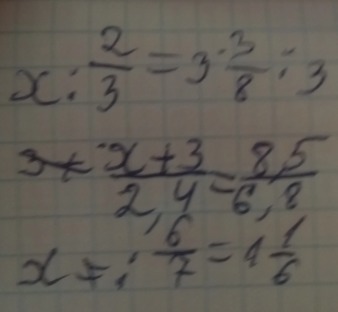 x : 2/3 = 3 · 3/8 : 3
(x+3)/2,4 = 8,5/6,8
x : 6/7 = 1 1/6